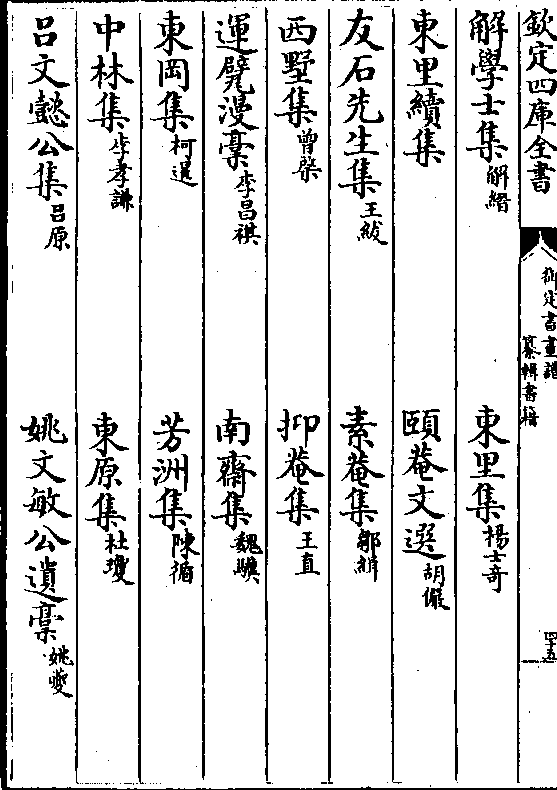 欽定四庫全書
御定書畫譜
纂輯書籍
四十五
解學士集 解縉
東里集 楊士奇
東里續集
頤菴文選 胡儼
友石先生集 王紱
素菴集 鄒緝
西墅集 曾棨
抑菴集 王直
運甓漫稾 李昌祺
南齋集 魏驥
東岡集 柯暹
芳洲集 陳循
中林集 李孝謙
東原集 杜瓊
呂文懿公集 呂原
姚文敏公遺稾 姚夔